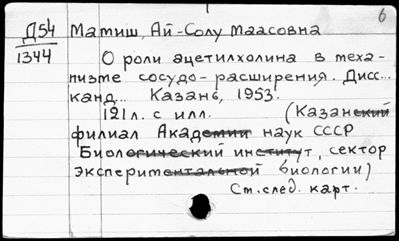 6
Д54 Матиш, Ай-Солу Маасовна
1344
О роли ацетилхолина в меха-
низме сосудо-расширения. Дисс...
канд... Казань, 1953.
121л. с илл. (Казанский
филиал Академии наук СССР
Биологический институт, сектор
экспериментальной биологии)
См. след. карт.